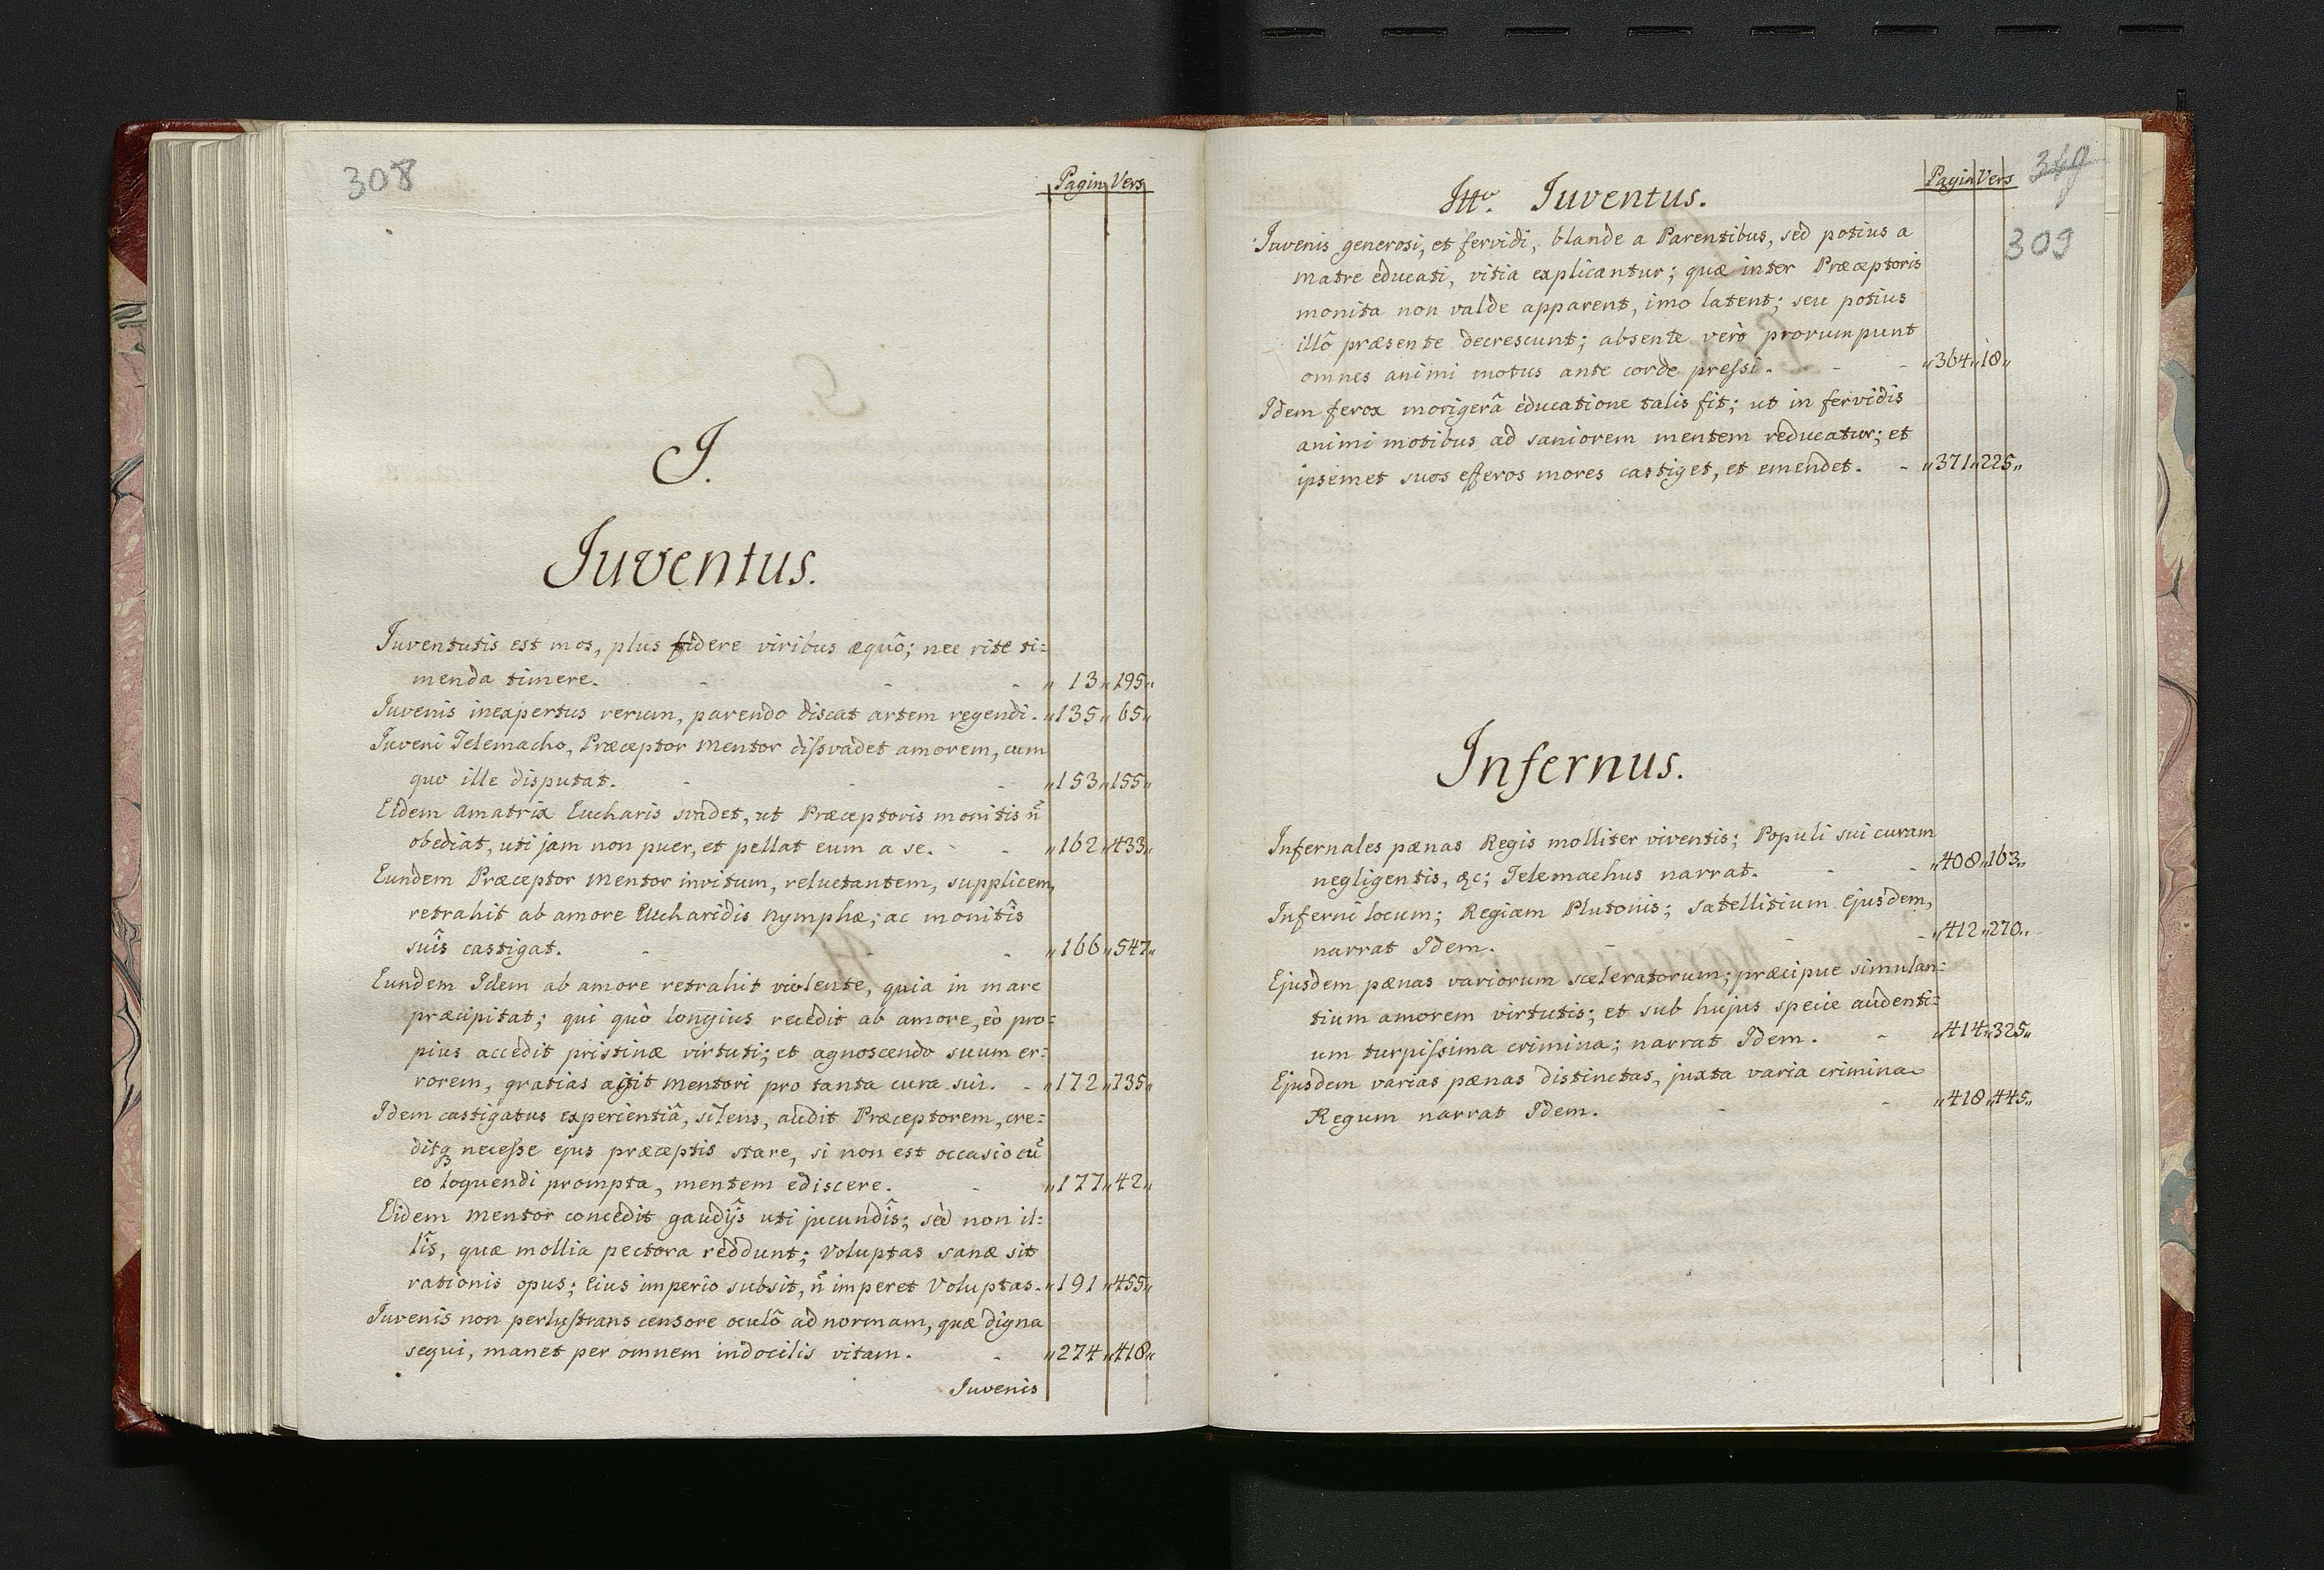 308
Pagin Vers
I.
Iuventus.
Iuventutis est mos, plus fidere viribus æquô; nec rite ti:
menda timere. - - - „ 13 „ 295 „
Iuvenis inexpertus rerum, parendo discat artem regendi. „ 135 „ 65 „
Iuveni Telemacho, Præceptor Mentor dissvadet amorem, cum
quo ille disputat. - - - „ 153 „ 155 „
Eidem Amatrix Eucharis svadet, ut Præceptoris monitis n̄
obediat, uti jam non puer, et pellat eum a se. - - „ 162 „ 433 „
Eundem Præceptor Mentor invitum, reluctantem, supplicem,
retrahit ab amore Eucharidis Nymphæ; ac monitîs
suîs castigat. - - - „ 166 „ 547 „
Eundem Idem ab amore retrahit violente, quia in mare
præcipitat; qui quò longius recedit ab amore, eò pro:
pius accedit pristinæ virtuti; et agnoscendo suum er:
rorem, gratias agit Mentori pro tanta cura sui. - „ 172 „ 735 „
Idem castigatus experientiâ, silens, audit Præceptorem, cre:
ditq necesse ejus præceptis stare, si non est occasio cū
eo loquendi prompta, mentem ediscere. - „ 177 „ 42 „
Eidem Mentor concedit gaudijs uti jucundîs; sed non il:
lîs, quæ mollia pectora reddunt; Voluptas sanæ sit
rationis opus; Eius imperio subsit, n̄ imperet Voluptas. „ 191 „ 455 „
Iuvenis non perlustrans censore oculô ad normam, quæ digna
sequi, manet per omnem indocilis vitam. - „ 274 „ 418 „
Iuvenis
Pagin Vers
309
Ittō. Iuventus.
Iuvenis generosi, et fervidi, blande a Parentibus, sed potius a
matre educati, vitia explicantur; quæ inter Præceptoris
monita non valde apparent, imo latent; seu potius
illô præsente decrescunt; absente verò prorumpunt
omnes animi motus ante corde pressi. - - „ 364 „ 18 „
Idem ferox morigerâ educatione talis fit; ut in fervidis
animi motibus ad saniorem mentem reducatur; et
ipsemet suos efferos mores castiget, et emendet. - „ 371 „ 225 „
Infernus.
Infernales pænas Regis molliter viventis; Populi sui curam
negligentis, &c; Telemachus narrat. - - „ 408 „ 163 „
Inferni locum; Regiam Plutonis; satellitium Ejusdem,
narrat Idem. - - - „ 412 „ 270 „
Ejusdem pænas variorum sceleratorum; præcipue simulan:
tium amorem virtutis; et sub hujus specie audenti:
um turpissima crimina; narrat Idem. - „ 414 „ 325 „
Ejusdem varias pænas distinctas, juxta varia crimina
Regum narrat Idem. - - „ 418 „ 445 „